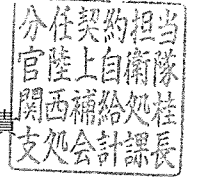 分任契約担当
官陸上自衛隊
関西補給処桂
支処会計課長